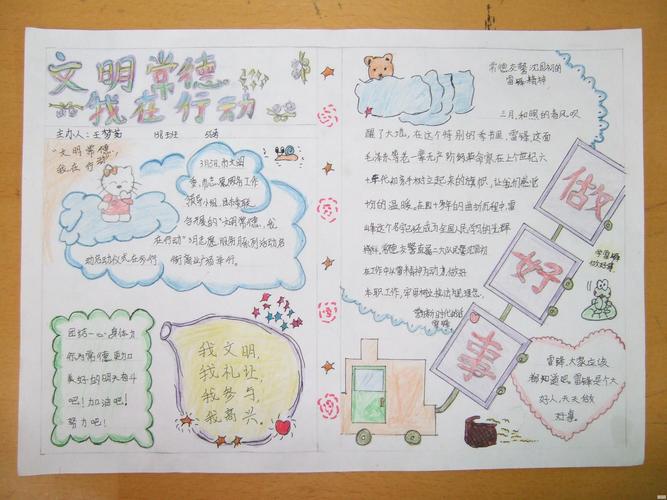 文明常德
我在行动
主办人:王梦茜
"文明常德,
我在行动"
3月5日,市文明
委、市志愿服务工作
领导小组、
"文明常德,我
在行动"3月志愿服务
动启动仪式在步行街商业广场举行。
团结一心,身体力
美好的明天奋斗
吧!加油吧!
努力吧!
我文明,
我礼让,
我参与,
我高兴。
常德交警沈国初的
雷锋精神
三月,和煦的春风吹
醒了大地,在这个特别的季节里,雷锋,这面
毛泽东等老一辈无产阶级革命家在上个世纪六
十年代初亲手树立起来的旗帜,让我们感觉
十份的温暖。在四十多年的曲折历程中,雷
锋这个名字已经成为全国人民学习的
榜样,常德交警直属二大队民警沈国初
在工作中以雷锋精神为动力,做好
本职工作,牢固树立执法为民理念,
新时代的活
雷锋
做
好
事
学雷锋
做好事
雷锋,大家应该
都知道吧,雷锋是个大
好人,天天做
好事。